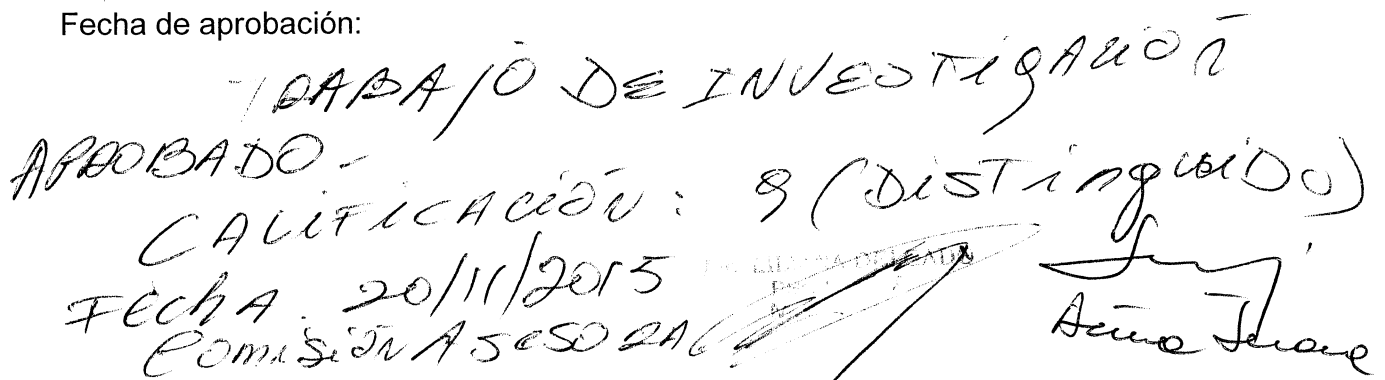 Fecha de aprobación:
TRABAJO DE INVESTIGACIÓN
APROBADO -
CALIFICACIÓN: 9 (DISTINGUIDO)
FECHA. 20/11/2015
COMISIÓN ASESORA